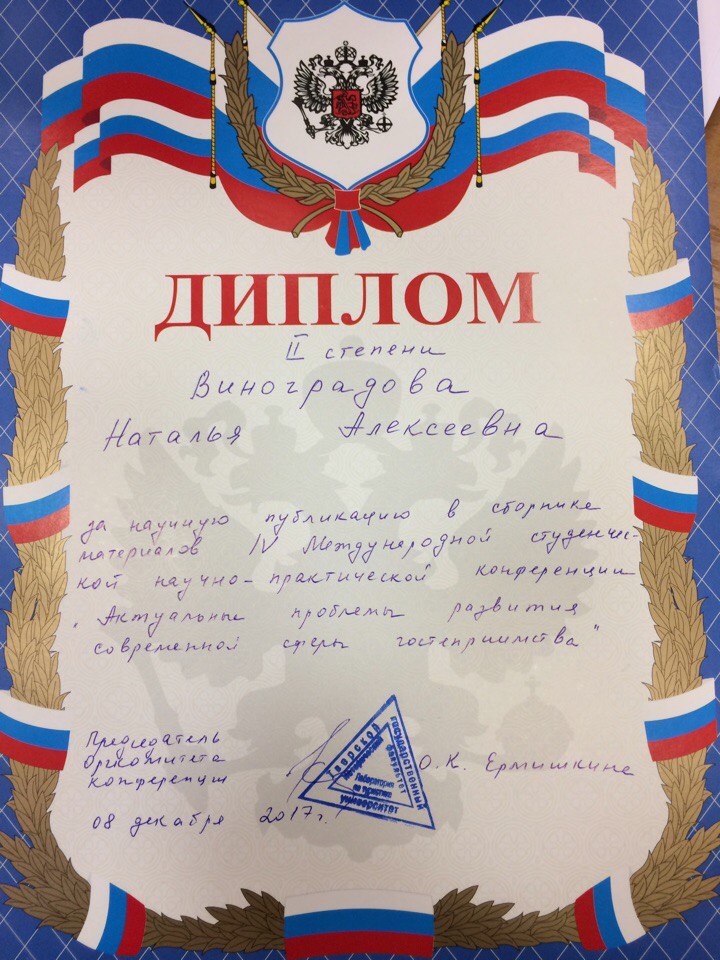 ДИПЛОМ
II степени
Виноградова
Наталья Алексеевна
за научную публикацию в сборнике
материалов IV Международной студенчес-
кой научно-практической конференции
"Актуальные проблемы развития
современной сферы гостеприимства"
Председатель
Оргкомитета
конференции
О.К. Ермишкина
08 декабря 2017г.
Тверской
государственный
университет
факультет
Лаборатория